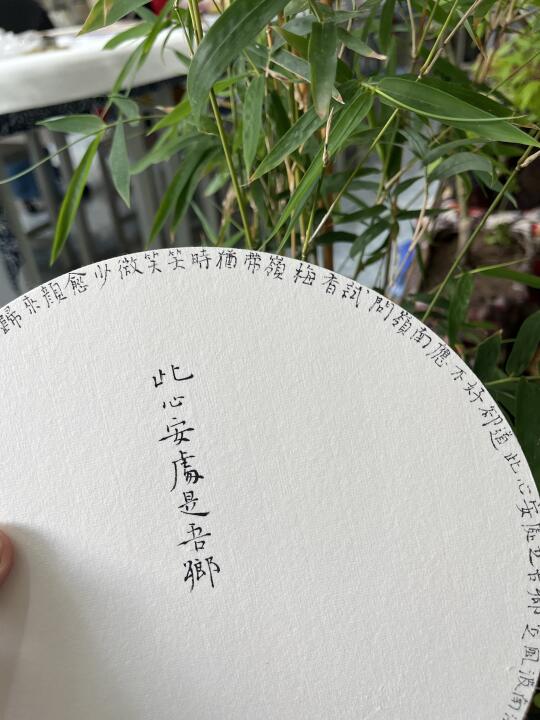 歸來顏愈少微笑笑時猶帶嶺梅香試問嶺南應不好卻道此心安處是吾鄉定風波南
此心安處是吾鄉